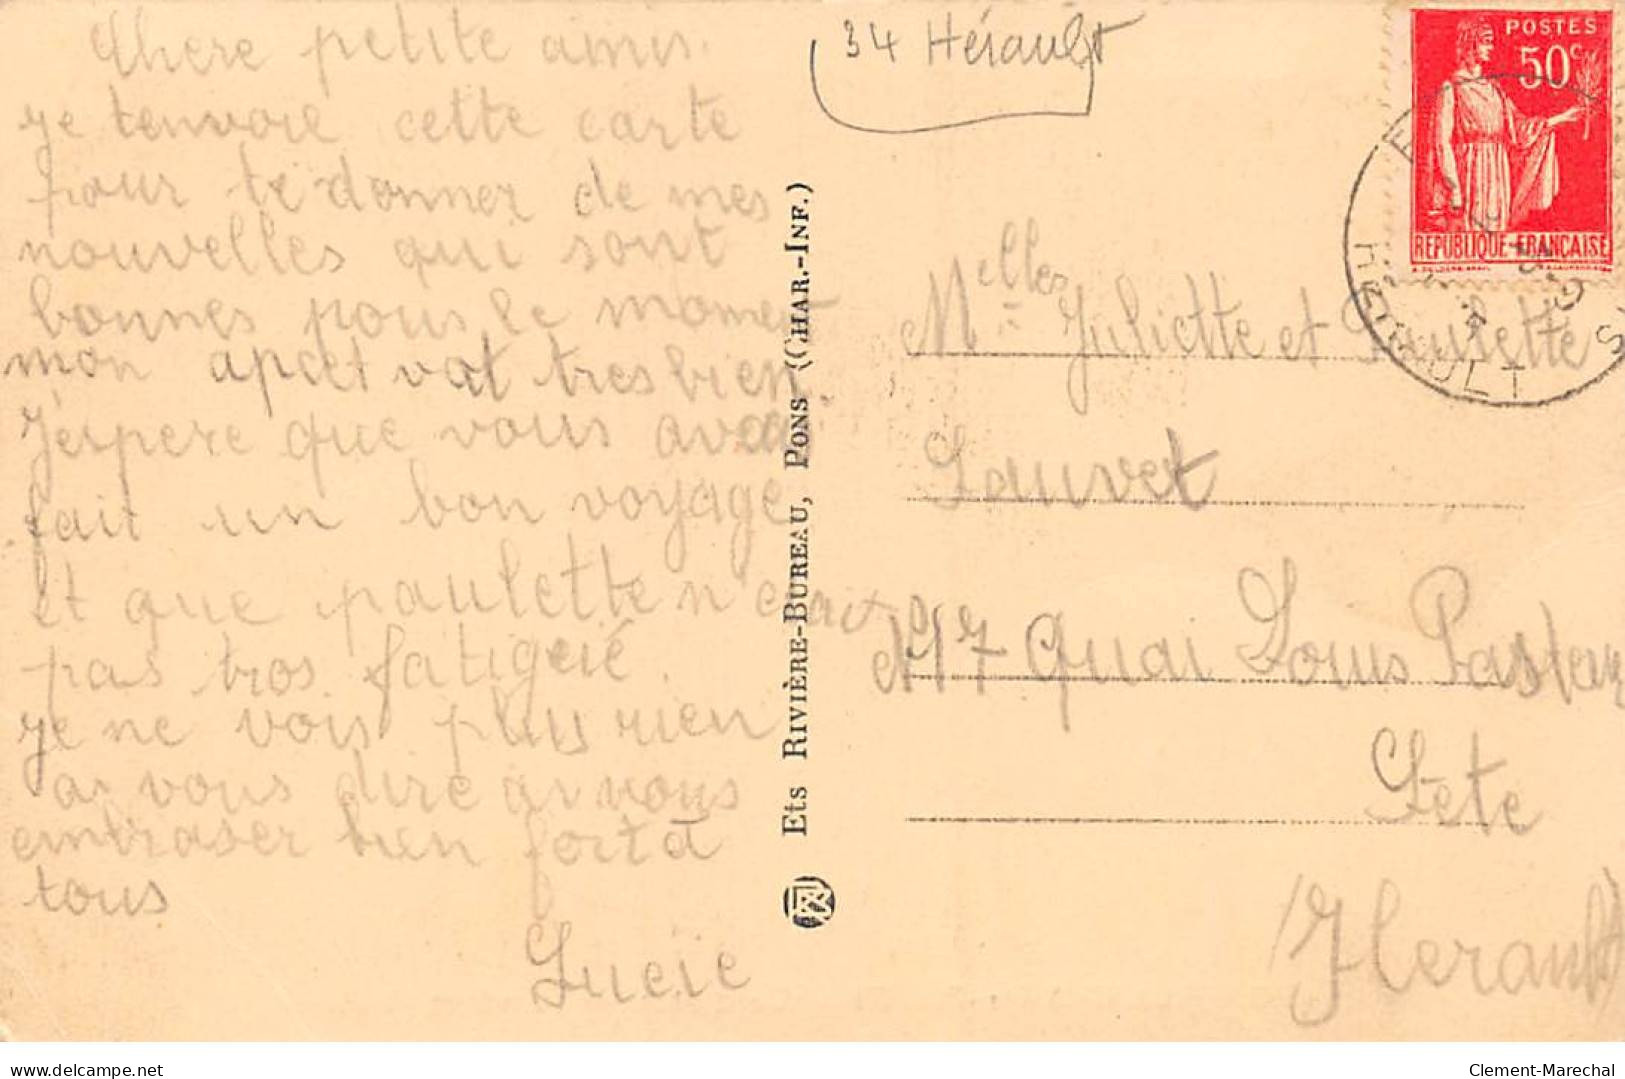 Chere petite amis.
je tenvoie cette carte
pour te donner de mes
nouvelles qui sont
bonnes pour le moment
mon apcet vat tres bien.
J'espere que vous avez
fait un bon voyage
et que paulette n'etait
pas tros fatigeié.
je ne vois plus rien
a vous dire qu vous
embraser bien fort a
tous
Lucie
34 Hérault
POSTES
50c
REPUBLIQUE FRANCAISE
HERAULT
Melles Juliette et Paulette
Sauvet
N17 Quai Louis Pasteur
Sète
Herault
Ets RIVIÈRE-BUREAU, PONS (CHAR.-INF.)
delcampe.net
Clement-Marechal